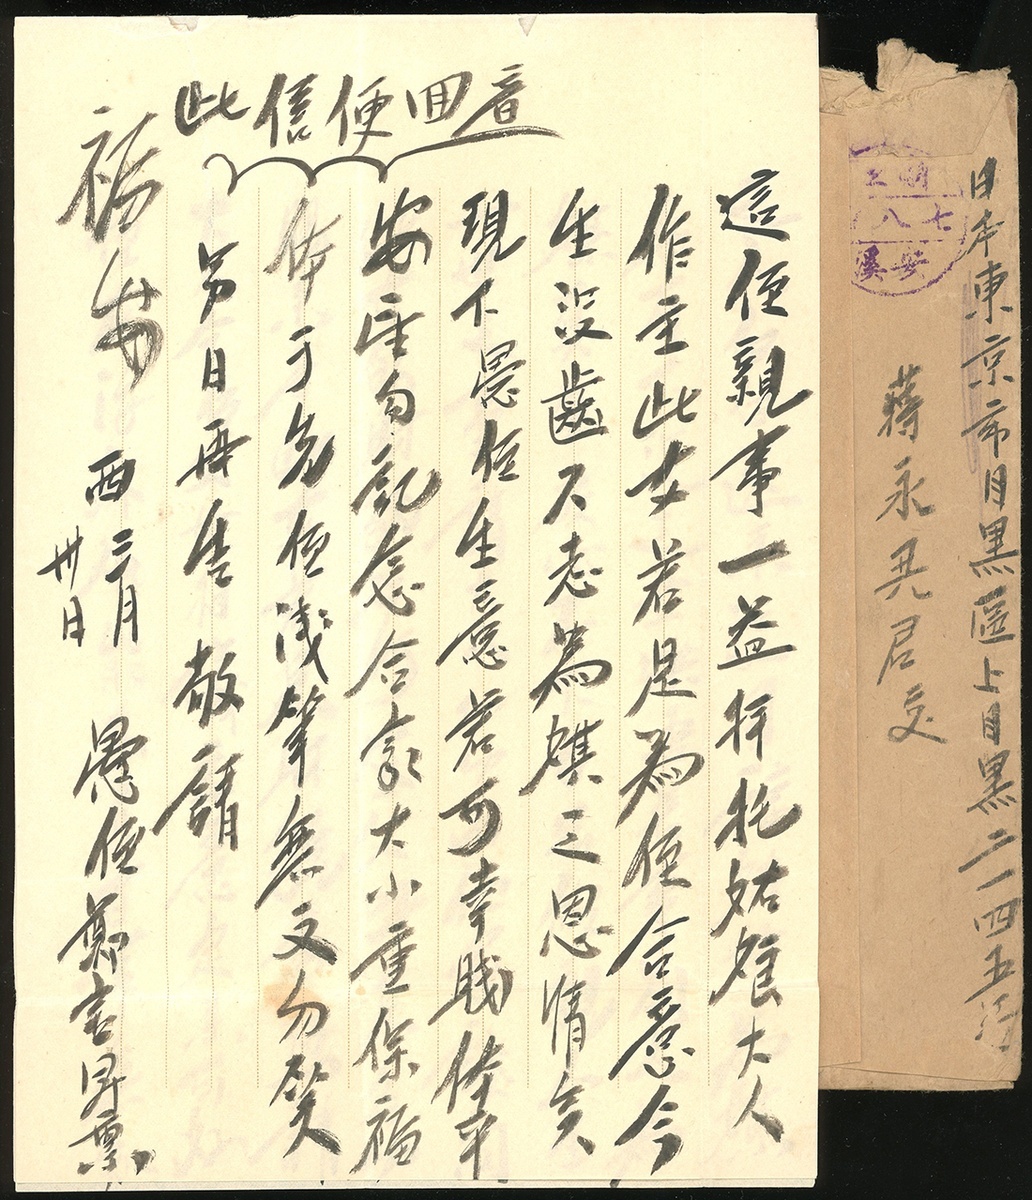 此信便回音
這侄親事一益拜托姑娘大人
作主此女若是為侄合意今
生沒齒不忘為媒之恩情矣
現下愚侄生意若可幸賤体平
安座勿記念合家大小重保福
体于兌侄淺筆無文勿笑
另日再告 敬請
福安 西 三月
卅日 愚侄鄭 昇票
日本東京市目黑區上目黑二一四五
蔣永 君交
七八
安溪